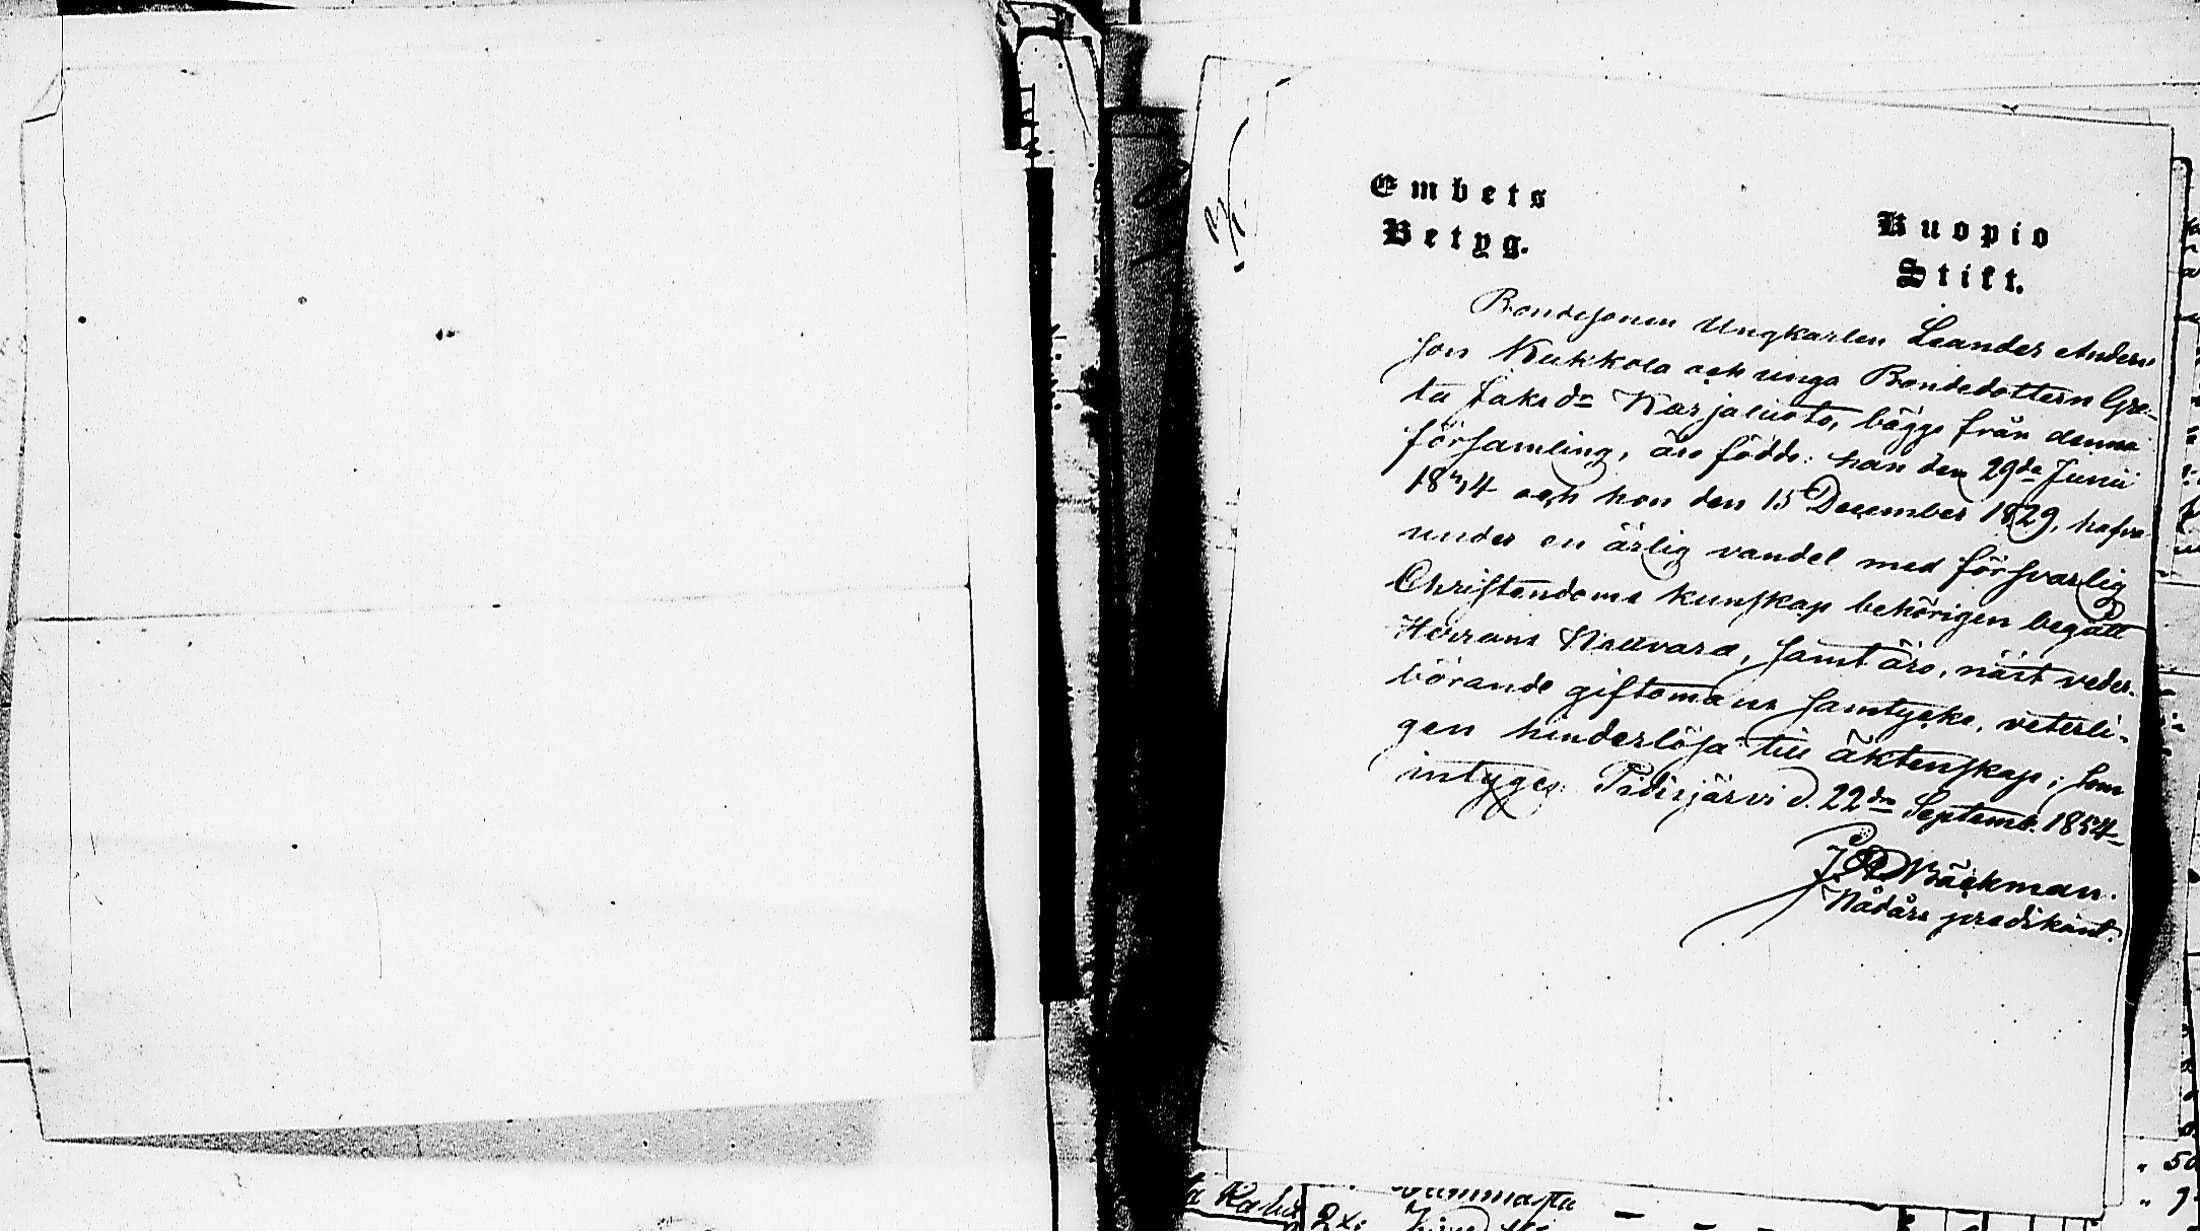 Embets
Betyg.
Kuopio
Stift.
Bondesonen Ungkarlen Leander Anders
son Kukkola och unga Bondedottern Gre-
ta Jaksdr Karjaluoto, bägge från denna
församling, äro födde: han den 29de Junii
18 4 och hon den 15 December 1829, hafva
under en ärlig vandel med försvarlig
Christendoms kunskap behörigen begått
Herrans Nattvard, samt äro, näst veder-
börande giftomans samtycke, veterli-
gen hinderlösa till äktenskap; som
intygas. Pidisjärvi d. 22dn Septemb. 1854
J. A. Bäckman.
Nådårs predikant.